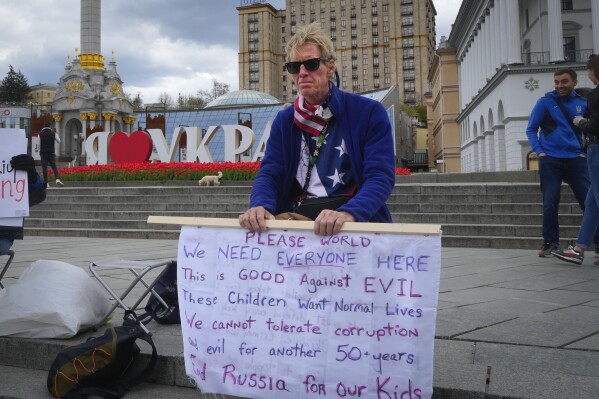 Я ❤ УКРА
ng
PLEASE WORLD
We NEED EVERYONE HERE
This is GOOD Against EVIL
These Children Want Normal Lives
We cannot tolerate corruption
and evil for another 50+years
End Russia for our Kids